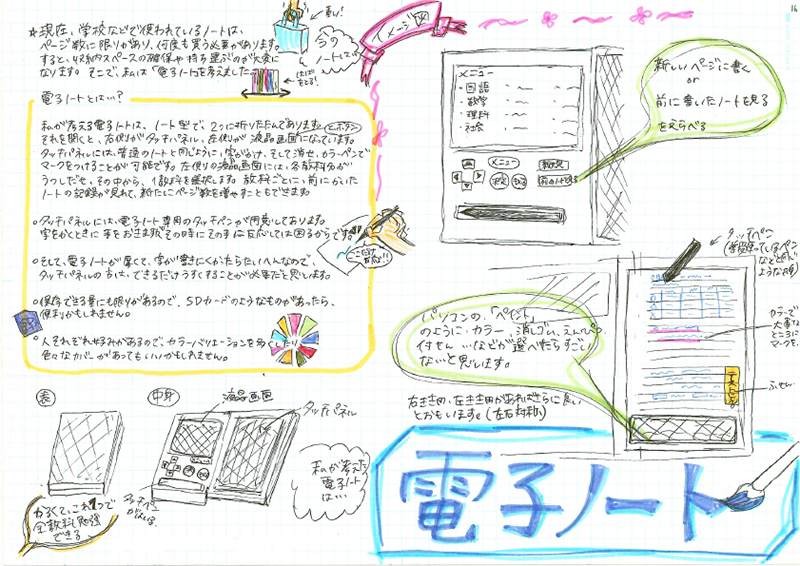 ★現在、学校などで使われているノートは、
ページ数に限りがあり、何度も買う必要があります。
すると、収納スペースの確保や持ち運ぶのが大変に
なります。そこで、私は「電子ノート」を考えました。
重い!
今の
ノートは…
はばを
とる!
イメージ図
16
電子ノートとは…?
私が考える電子ノートは、ノート型で、2つに折りたたんであります。
それを開くと、右側がタッチパネル、左側が液晶画面になっています。
タッチパネルには、普通のノートと同じように、字がかけ、そして消せ、カラーペンで
マークをつけることが可能です。左側の液晶画面には、各教科名が
うつしだせ、その中から、1教科を選択します。教科ごとに、前にかいた
ノートの記録が見れて、新たにページ数を増やすこともできます。
とボタン
・タッチパネルには、電子ノート専用のタッチペンが用意してあります。
字をかくときに手をおきますが、その時にその手に反応しては困るからです。
ここだけ
反応!!
・そして、電子ノートが厚くて、字が書きにくかったらたいへんなので、
タッチパネルの方は、できるだけうすくすることが必要だと思います。
・保存できる量にも限りがあるので、SDカードのようなものがあったら、
便利かもしれません。
・人それぞれ好みがあるので、カラーバリエーションを多くしたり
色々なカバーがあってもいいかもしれません。
メニュー
・国語
・数学
・理科
・社会
メニュー
決定
もどる
新規
前のノートを見る
新しいページに書く
or
前に書いたノートを見る
をえらべる
タッチペン
パソコンの、「ペイント」
のように、カラー、消しゴム、えんぴつ、
付せん…などが選べたらすごい
ないと思います。
カラーで
大事な
ところに
マークを。
テストにでる
ふせん
右きき用、左きき用があればさらに良い
とおもいます。(左右対称)
表
中身
液晶画面
タッチパネル
かるくて、これ1つで
全教科勉強
できる
私が考えた
電子ノート
は…
電子ノート